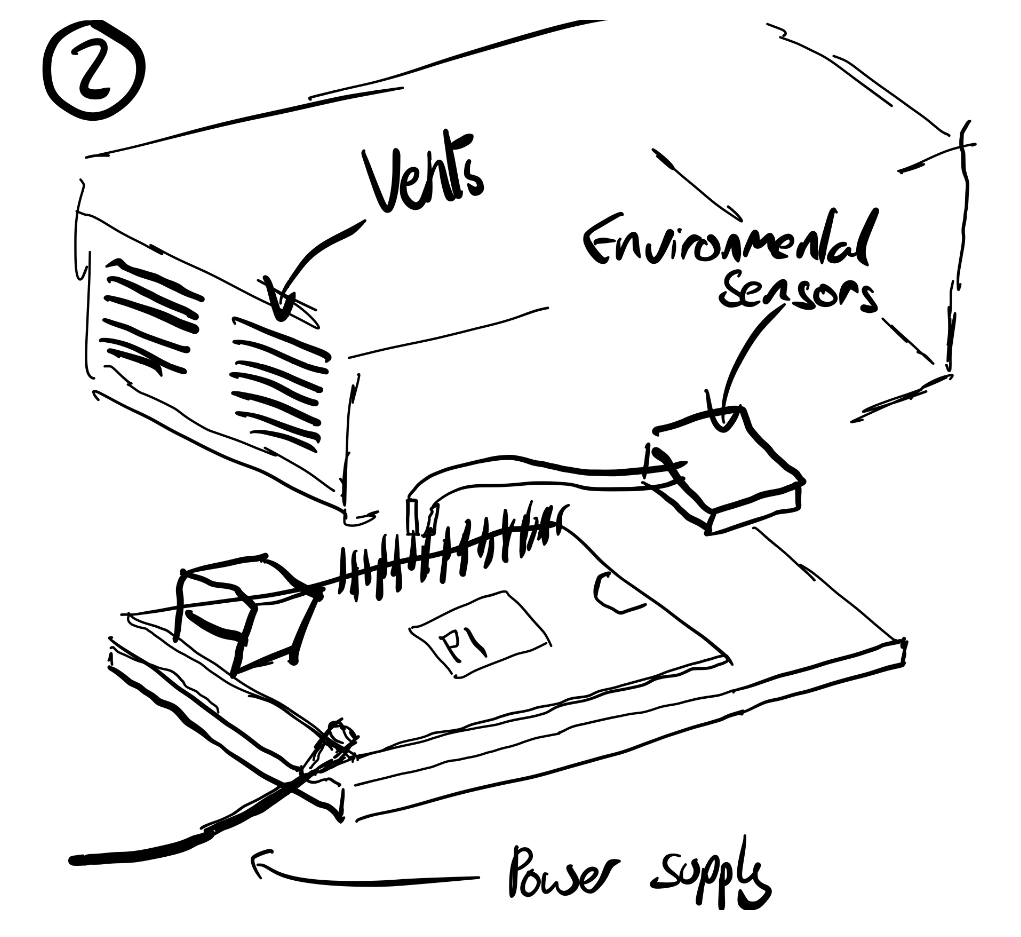 2
Vents
Environmental
Sensors
PI
Power supply